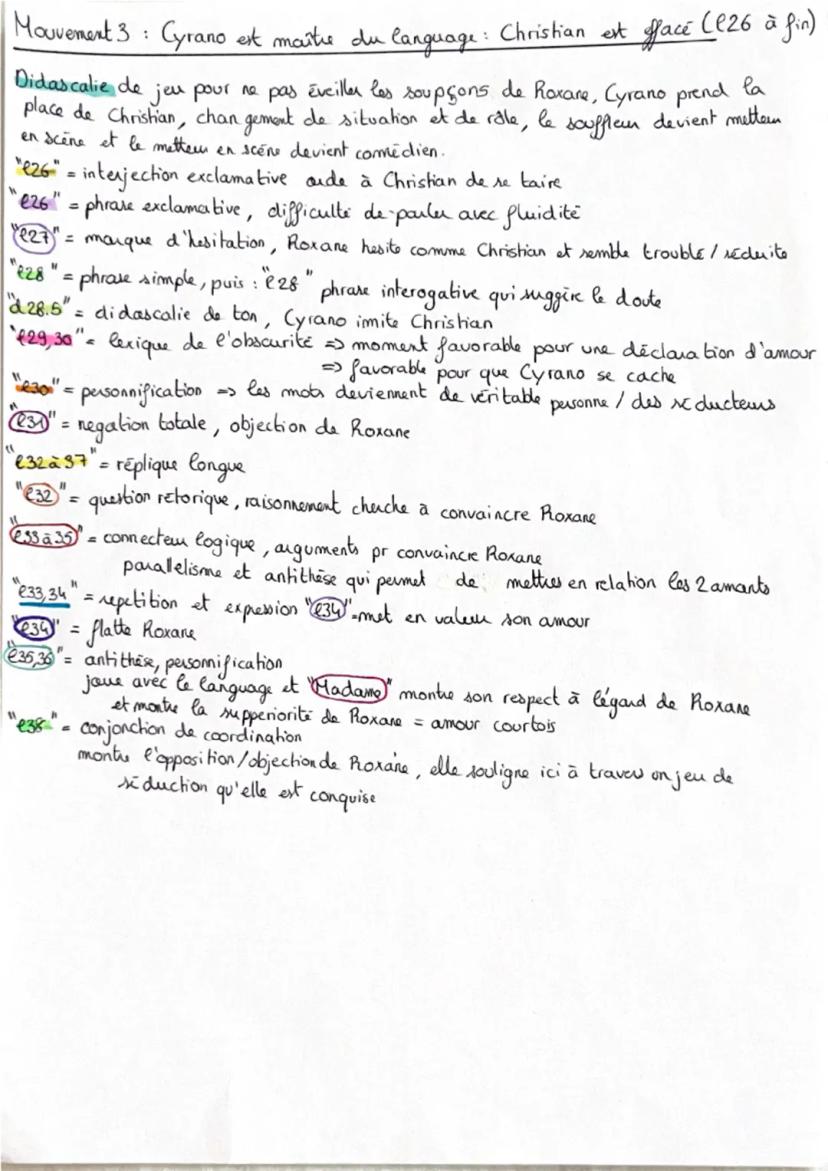 Mouvement 3 : Cyrano est maître du language : Christian est effacé (l26 à fin)
Didascalie de jeu pour ne pas éveiller les soupçons de Roxane, Cyrano prend la
place de Christian, changement de situation et de rôle, le souffleur devient metteur
en scène et le metteur en scène devient comédien.
"l26" = interjection exclamative aide à Christian de se taire
"l26" = phrase exclamative, difficulté de parler avec fluidité
"l27" = marque d'hesitation, Roxane hesite comme Christian et semble troublé / séduite
"l28" = phrase simple, puis : "l28" phrase interogative qui suggère le doute
"d28.5" = didascalie de ton, Cyrano imite Christian
"l29,30" = lexique de l'obscurité => moment favorable pour une déclaration d'amour
=> favorable pour que Cyrano se cache
"l30" = personnification => les mots deviennent de véritable personne / des séducteurs
"l31" = negation totale, objection de Roxane
"l32 à 37" = réplique longue
"l32" = question rétorique, raisonnement cherche à convaincre Roxane
"l33 à 35" = connecteur logique, arguments pr convaincre Roxane
parallelisme et antithèse qui permet de mettres en relation les 2 amants
"l33,34" = repetition et expression "l34" = met en valeur son amour
"l34" = flatte Roxane
"l35,36" = antithèse, personnification
joue avec le language et "Madame" montre son respect à légard de Roxane
et montre la supperiorité de Roxane = amour courtois
"l38" = conjonction de coordination
montre l'opposition/objection de Roxane, elle souligne ici à travers un jeu de
séduction qu'elle est conquise